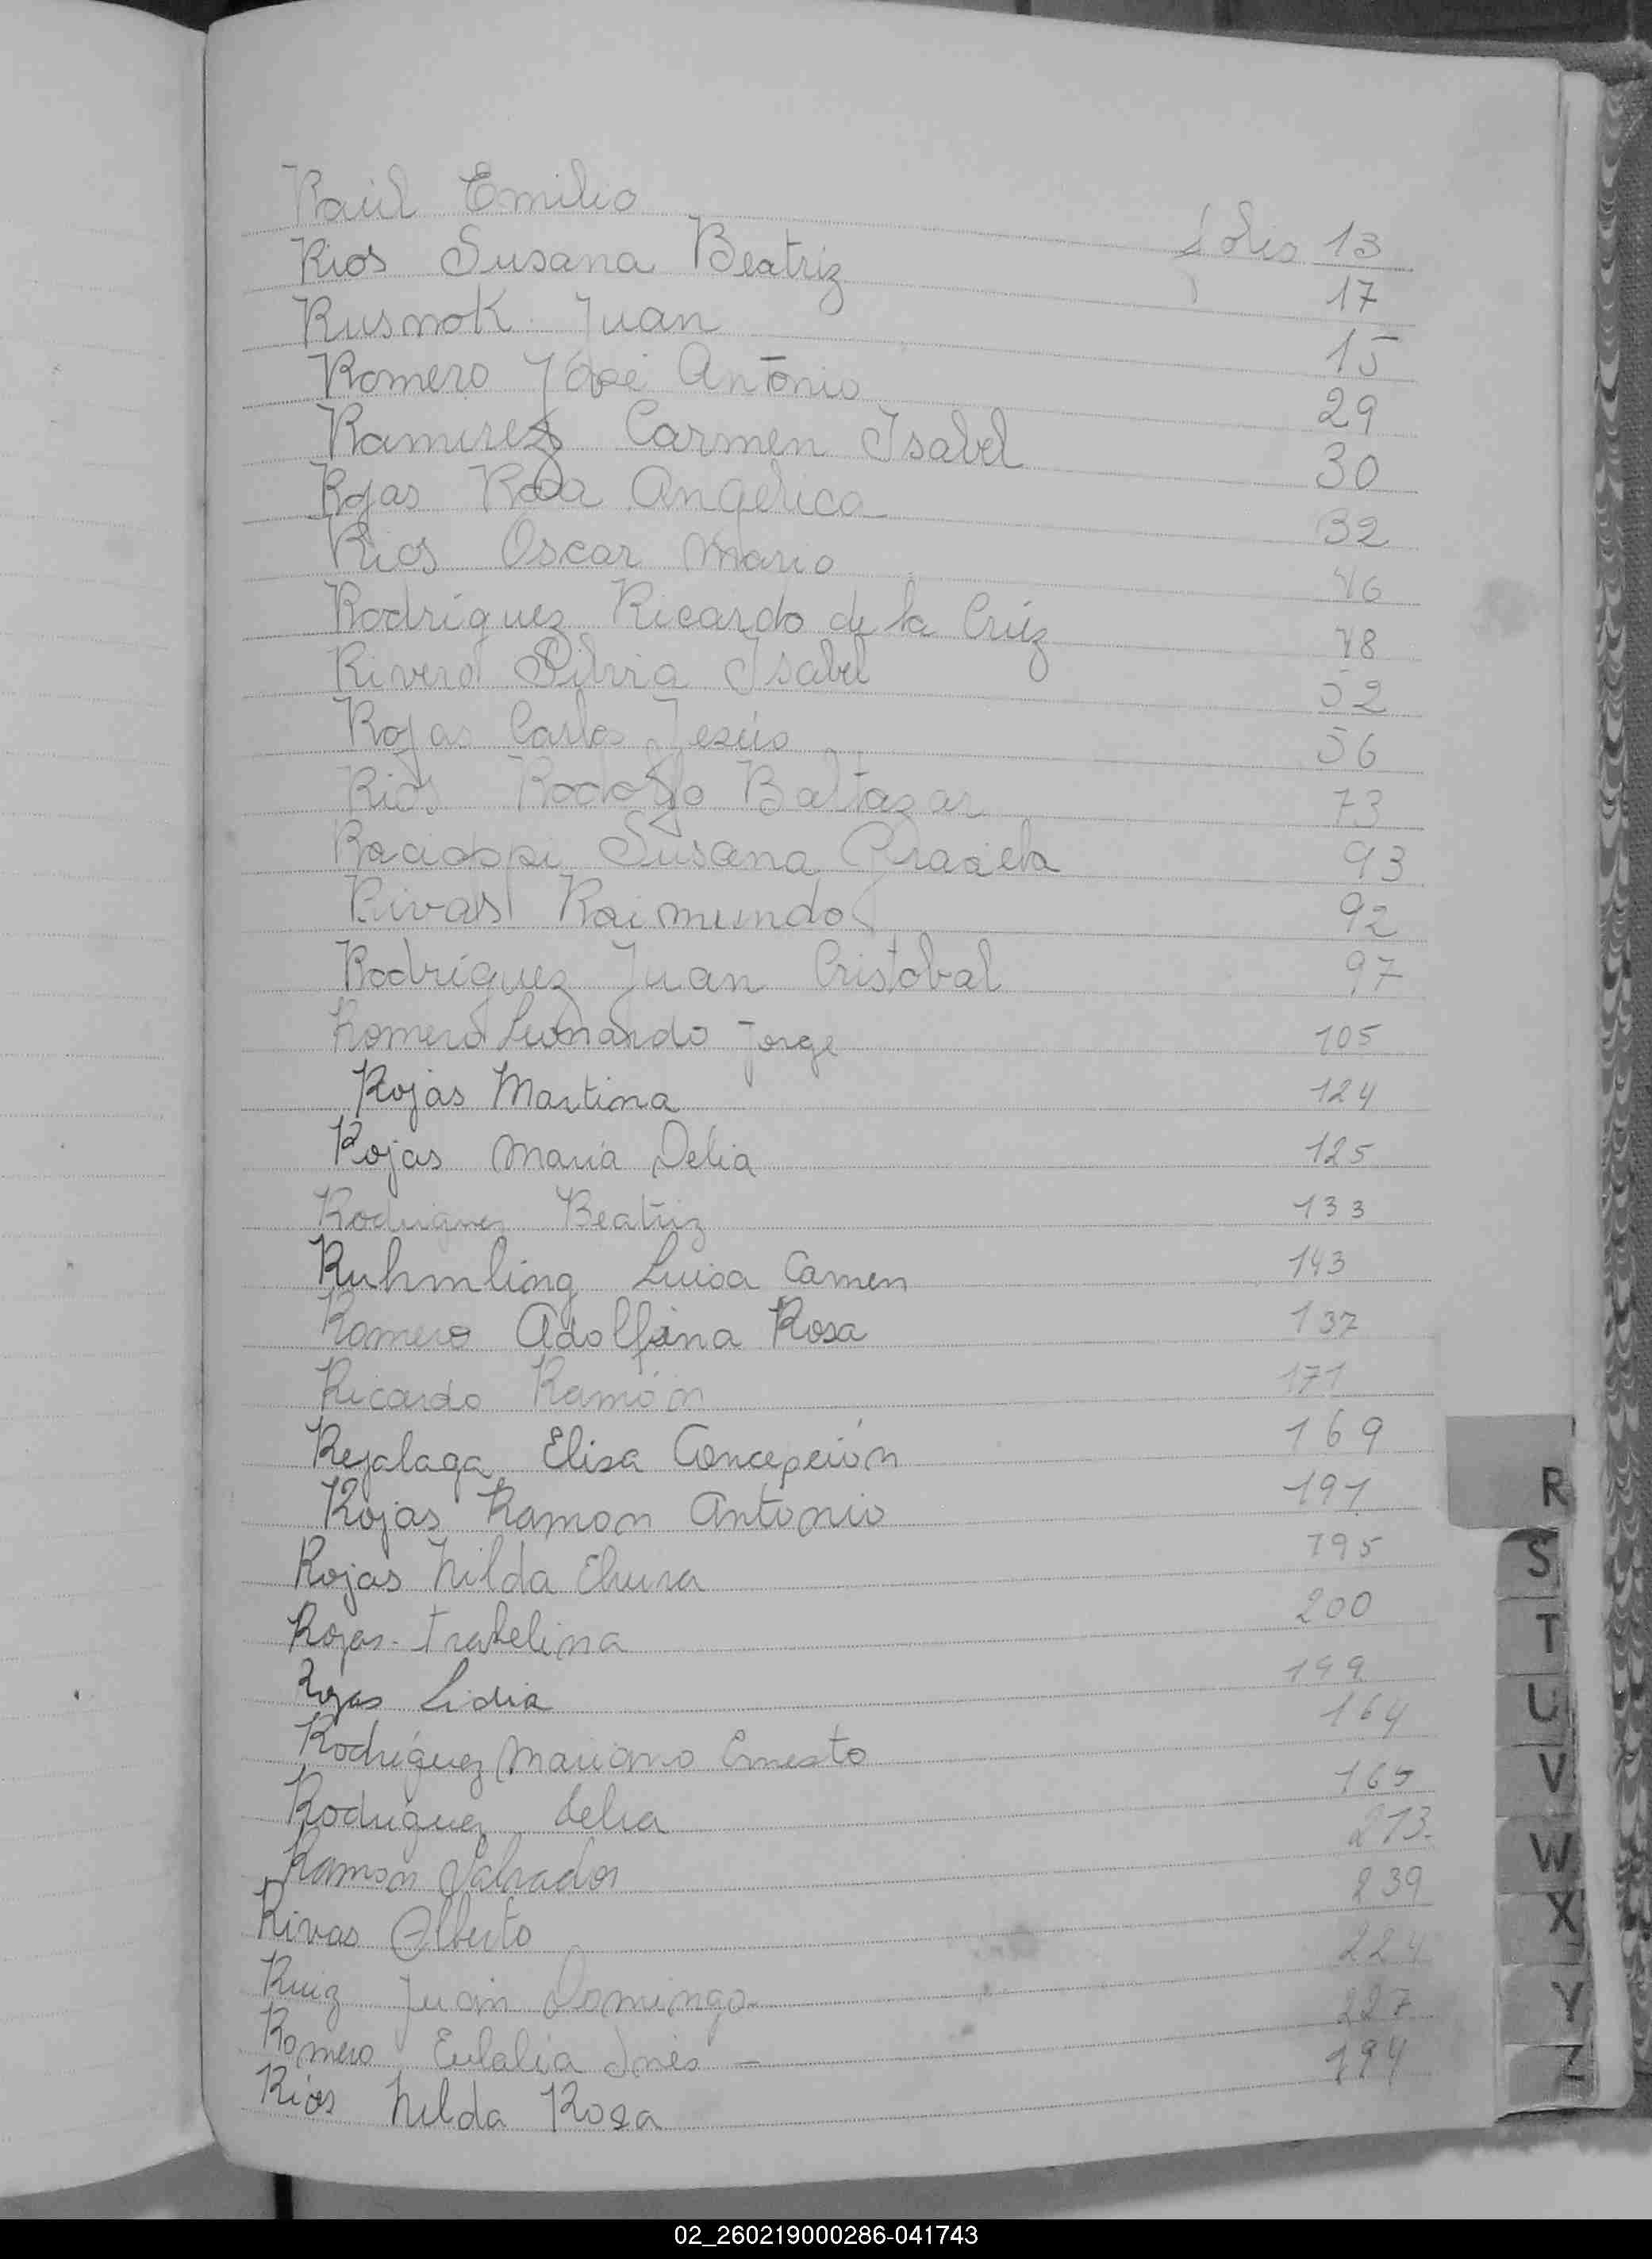 Raúl Emilio folio 13
Rios Susana Beatriz 17
Rusnok Juan 15
Romero José Antonio 29
Ramirez Carmen Isabel 30
Rojas Rosa Angelica 32
Rios Oscar Mario 46
Rodríguez Ricardo de la Crúz 48
Rivero Silvia Isabel 52
Rojas Carlos Jesús 56
Rios Rodolfo Baltazar 73
Racioppi Susana Graciela 93
Rivas Raimundo 92
Rodríguez Juan Cristobal 97
Romero Leonardo Jorge 105
Rojas Martina 124
Rojas María Delia 125
Rodriguez Beatriz 133
Ruhmling Luisa Camen 143
Romero Adolfina Rosa 137
Ricardo Ramón 171
Rejalaga Elisa Concepción 169
Rojas Ramon Antonio 191
Rojas Nilda 195
Rojas 200
Rojas Lidia 199
Rodríguez Mariano Ernesto 164
Rodriguez Delia 165
Ramon Salvador 213
Rivas Alberto 239
Ruiz Juan Domingo 224
Romero Eulalia Inés - 227
Ríos Nilda Rosa 194
R
S
T
U
V
W
X
Y
Z
02_260219000286-041743